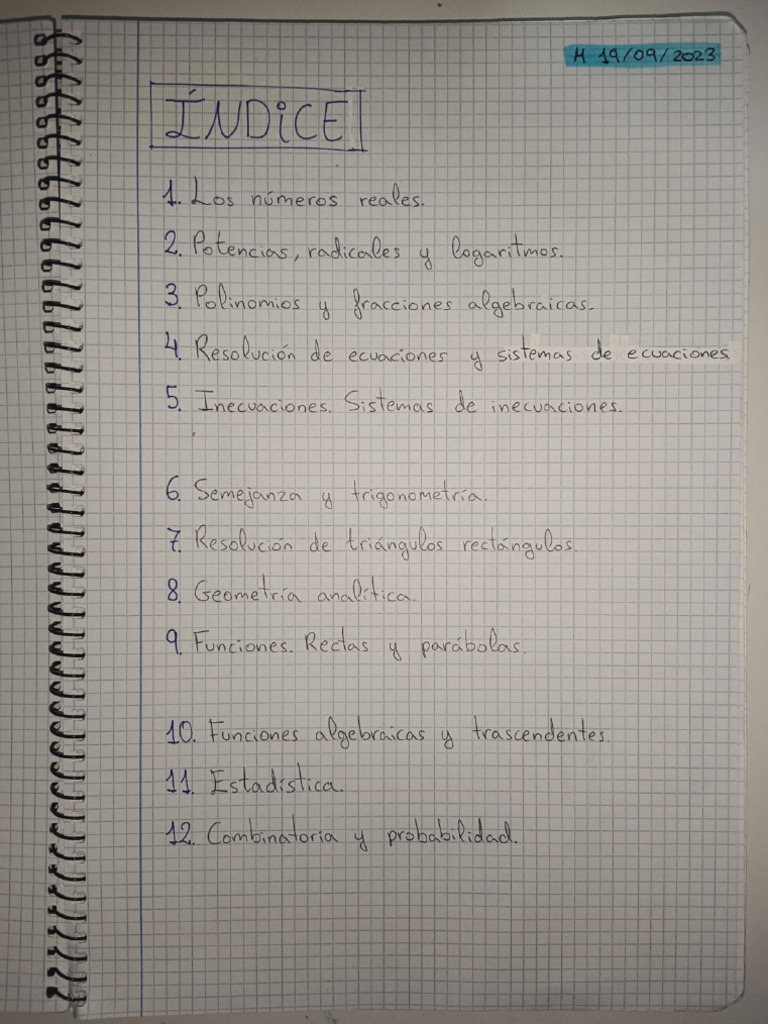 M 19/09/2023
ÍNDiCE
1. Los números reales.
2. Potencias, radicales y logaritmos.
3. Polinomios y fracciones algebraicas.
4. Resolución de ecuaciones y sistemas de ecuaciones
5. Inecuaciones. Sistemas de inecuaciones.
6. Semejanza y trigonometría.
7. Resolución de triángulos rectángulos.
8. Geometría analítica.
9. Funciones. Rectas y parábolas.
10. Funciones algebraicas y trascendentes.
11. Estadística.
12. Combinatoria y probabilidad.